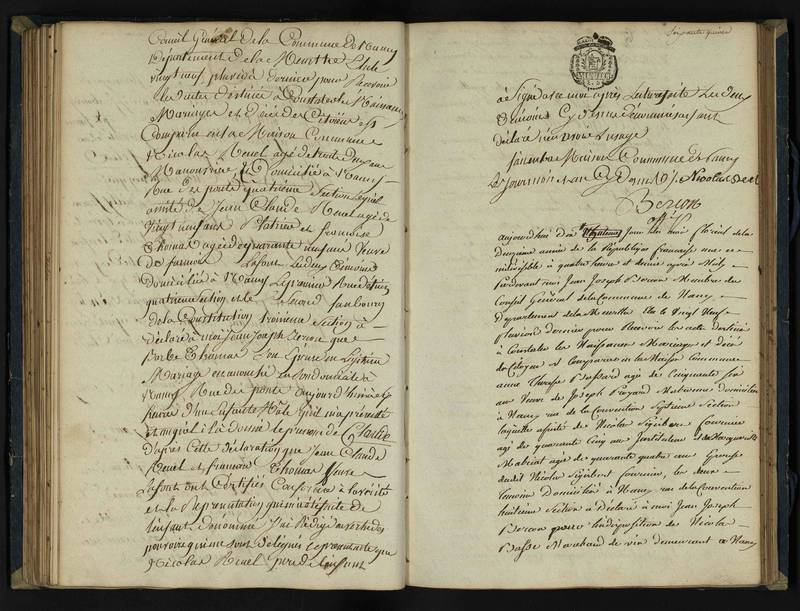 Conseil Général de la Commune de Nancy
Département de la Meurthe Elu le
vingt neuf pluviôse dernier pour Recevoir
les actes destinés à Constater les Naissances
Mariages et Décès des Citoyens est
Comparu en la Maison Commune
Nicolas Ruel agé de trente deux ans
Manoeuvre Domicilié à Nancy
Rue de porte quatrième Section lequel
assisté de Jean Claude Ruel agé de
vingt un ans Platrier et françoise
Thomas agée de quarante un ans veuve
de françois Lafont les deux témoins
Domiciliés à Nancy Le premier Rue
quatrième Section et le Second faubourg
de la Constitution troisième Section à
Déclaré à moi Jean Joseph Berson que
Barbe Thomas Son Epouse en Légitime
Mariage en accouché en Son domicile à
Nancy Rue de porte aujourd'hui à
heures d'un Enfant Mâle qu'il m'a présenté
et auquel il à donné le prénom de Claude
D'après cette déclaration que Jean Claude
Ruel et françoise Thomas veuve
Lafont ont Certifiée Conforme à la vérité
et la Représentation qui m'a été faite de
l'enfant dénommé J'ai Rédigé en vertu des
pouvoirs qui me sont délégués Le présent acte que
Nicolas Ruel père de l'enfant
Soixante quinze
à Signé avec moi après Lecture faite Les deux
témoins Cy dessus dénommés ayant
déclaré n'en avoir l'usage
fait en la Maison Commune de Nancy
Les jour mois et an Cy Dessus
Nicolas Ruel
Berson
off. p.
aujourd'hui Dix du mois floréal de la
Deuxième année de la République française une et
indivisible à quatre heures et demie après Midy
pardevant moi Jean Joseph Berson Membre du
Conseil Général de la Commune de Nancy
Département de la Meurthe Elu le Vingt Neuf
pluviose dernier pour Recevoir les actes destinés
à Constater les Naissances Mariages et Décès
des Citoyens est Comparue en la Maison Commune
anne Thérèse agée de Cinquante six
ans veuve de Joseph domiciliée
à Nancy rue de la Convention Septième Section
laquelle assistée de Nicolas
agé de quarante cinq ans et de Marguerite
agée de quarante quatre ans Epouse
dudit Nicolas les deux
temoins Domiciliés à Nancy rue de la Convention
huitième Section a déclaré à moi Jean Joseph
Berson pour l'indisposition de Nicolas
Basse Marchand de vin demeurant à Nancy